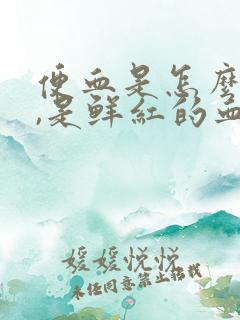 便血是怎麼
,是鮮紅的血
媛媛悦悦
未经同意禁止搭载